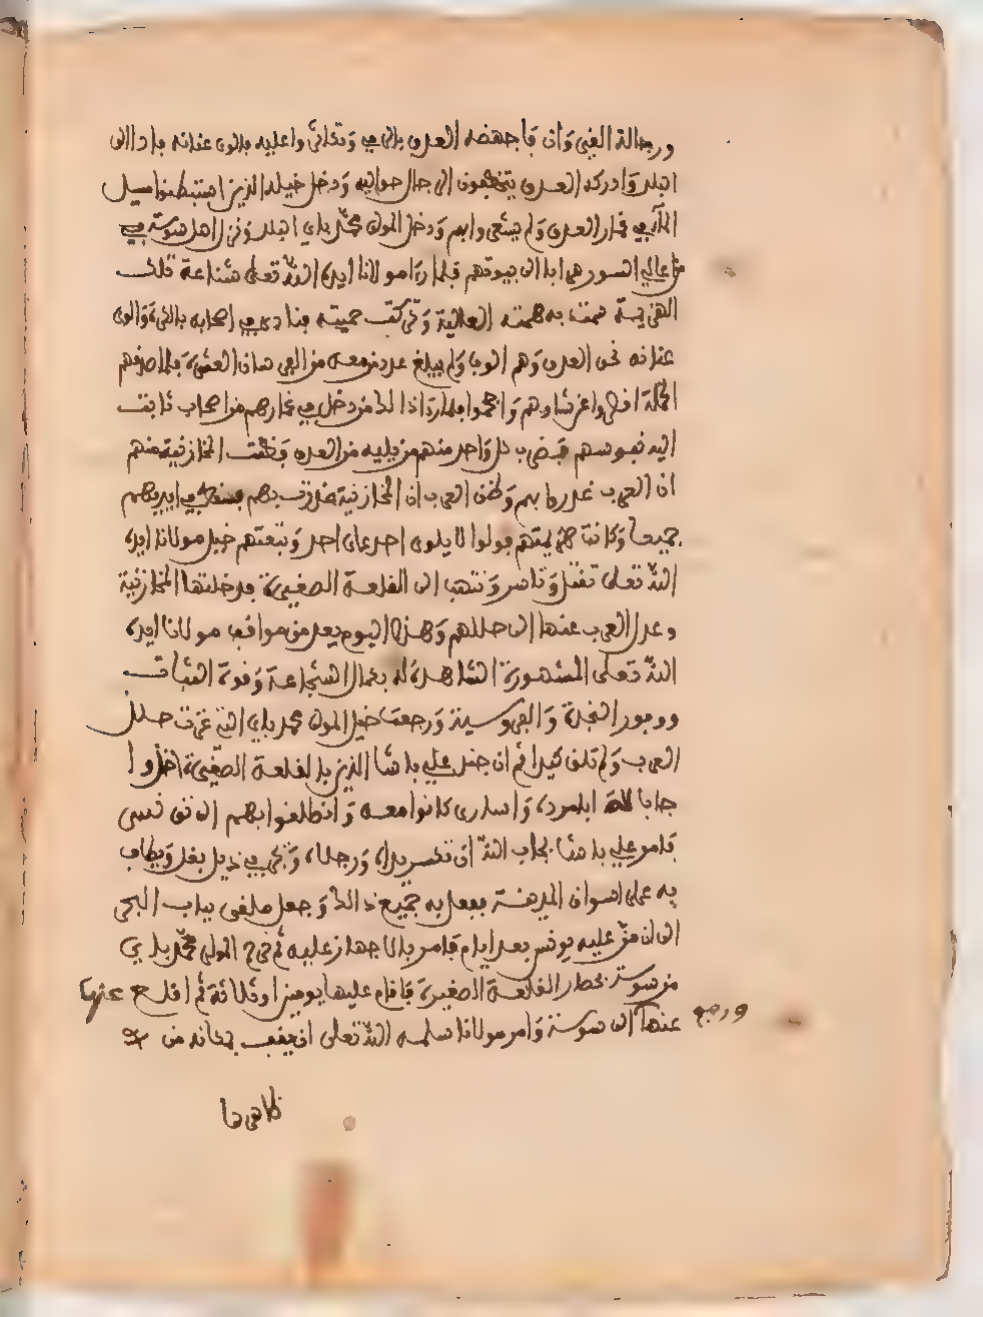 ورجالة الغي وان فاجهضه العدو بالرمي وتكاثروا عليه فلوى عنانه فارا الى
البلد وادركه العدو يتخطفون الرجال حواليه ودخل خيله الذين استبطنوا مسيل
المآء في غمار العدو ولم يشعروا بهم ودخل المولى محمد باي البلد ونزل اهل سوسة في
من عالي السور هرابا الى بيوتهم فلما رءا مولانا ايده الله تعلى شناعة تلك
الهزيمة سمت به همته العالية وتركت حميته فنادى في اصحابه بالكرة والوى
عنانه نحو العدو وهم الوف ولم يبلغ عدد من معه من الفرسان العشرة فلما صدفهم
الحملة افرجوا عن شاوهم وانجموا فلما رءا ذالك من دخل في غمارهم من اصحاب ثابت
اليه نفوسهم فضرب كل واحد منهم من يليه من العدو فظنت المخازنية منهم
ان العرب غدروا بهم وظن العرب ان المخازنية غدرت بهم فسقط في ايديهم
جميعا وكانت هزيمتهم فولوا لا يلوى احد على احد وتبعتهم خيل مولانا ايده
الله تعلى تقتل وتاسر وتنهب الى القلعة الصغيرة فدخلتها المخازنية
وعدل العرب عنها الى حللهم وهذا اليوم يعد من مواقف مولانا ايده
الله تعلى المشهورة الشاهدة له بكمال الشجاعة وقوة الثبات
ووفور النجدة والفروسية ورجعت خيل المولى محمد باي التى غزت حلل
العرب ولم تلق كيدا ثم ان جند علي باشا الذين بالقلعة الصغيرة اخذوا
جابا لله ابلمرد، واسارى كانوا معه وانطلقوا بهم الى تونس
فامر علي باشا بجاب الله ان تكسر يداه ورجلاه ويجر في ذيل بغل ويطاف
به على اسواق المدينة ففعل به جميع ذالك وجعل ملقى بباب البحر
الى ان مر عليه يونس بعد ايام فامر بالاجهاز عليه ثم خرج المولى محمد باي
من سوسة بحصار القلعة الصغيرة فاقام عليها يومين او ثلاثة ثم اقلع عنها
ورجع عنها الى سوسة وامر مولانا سلمه الله تعلى ان يقف بمكانه من
ظاهرها